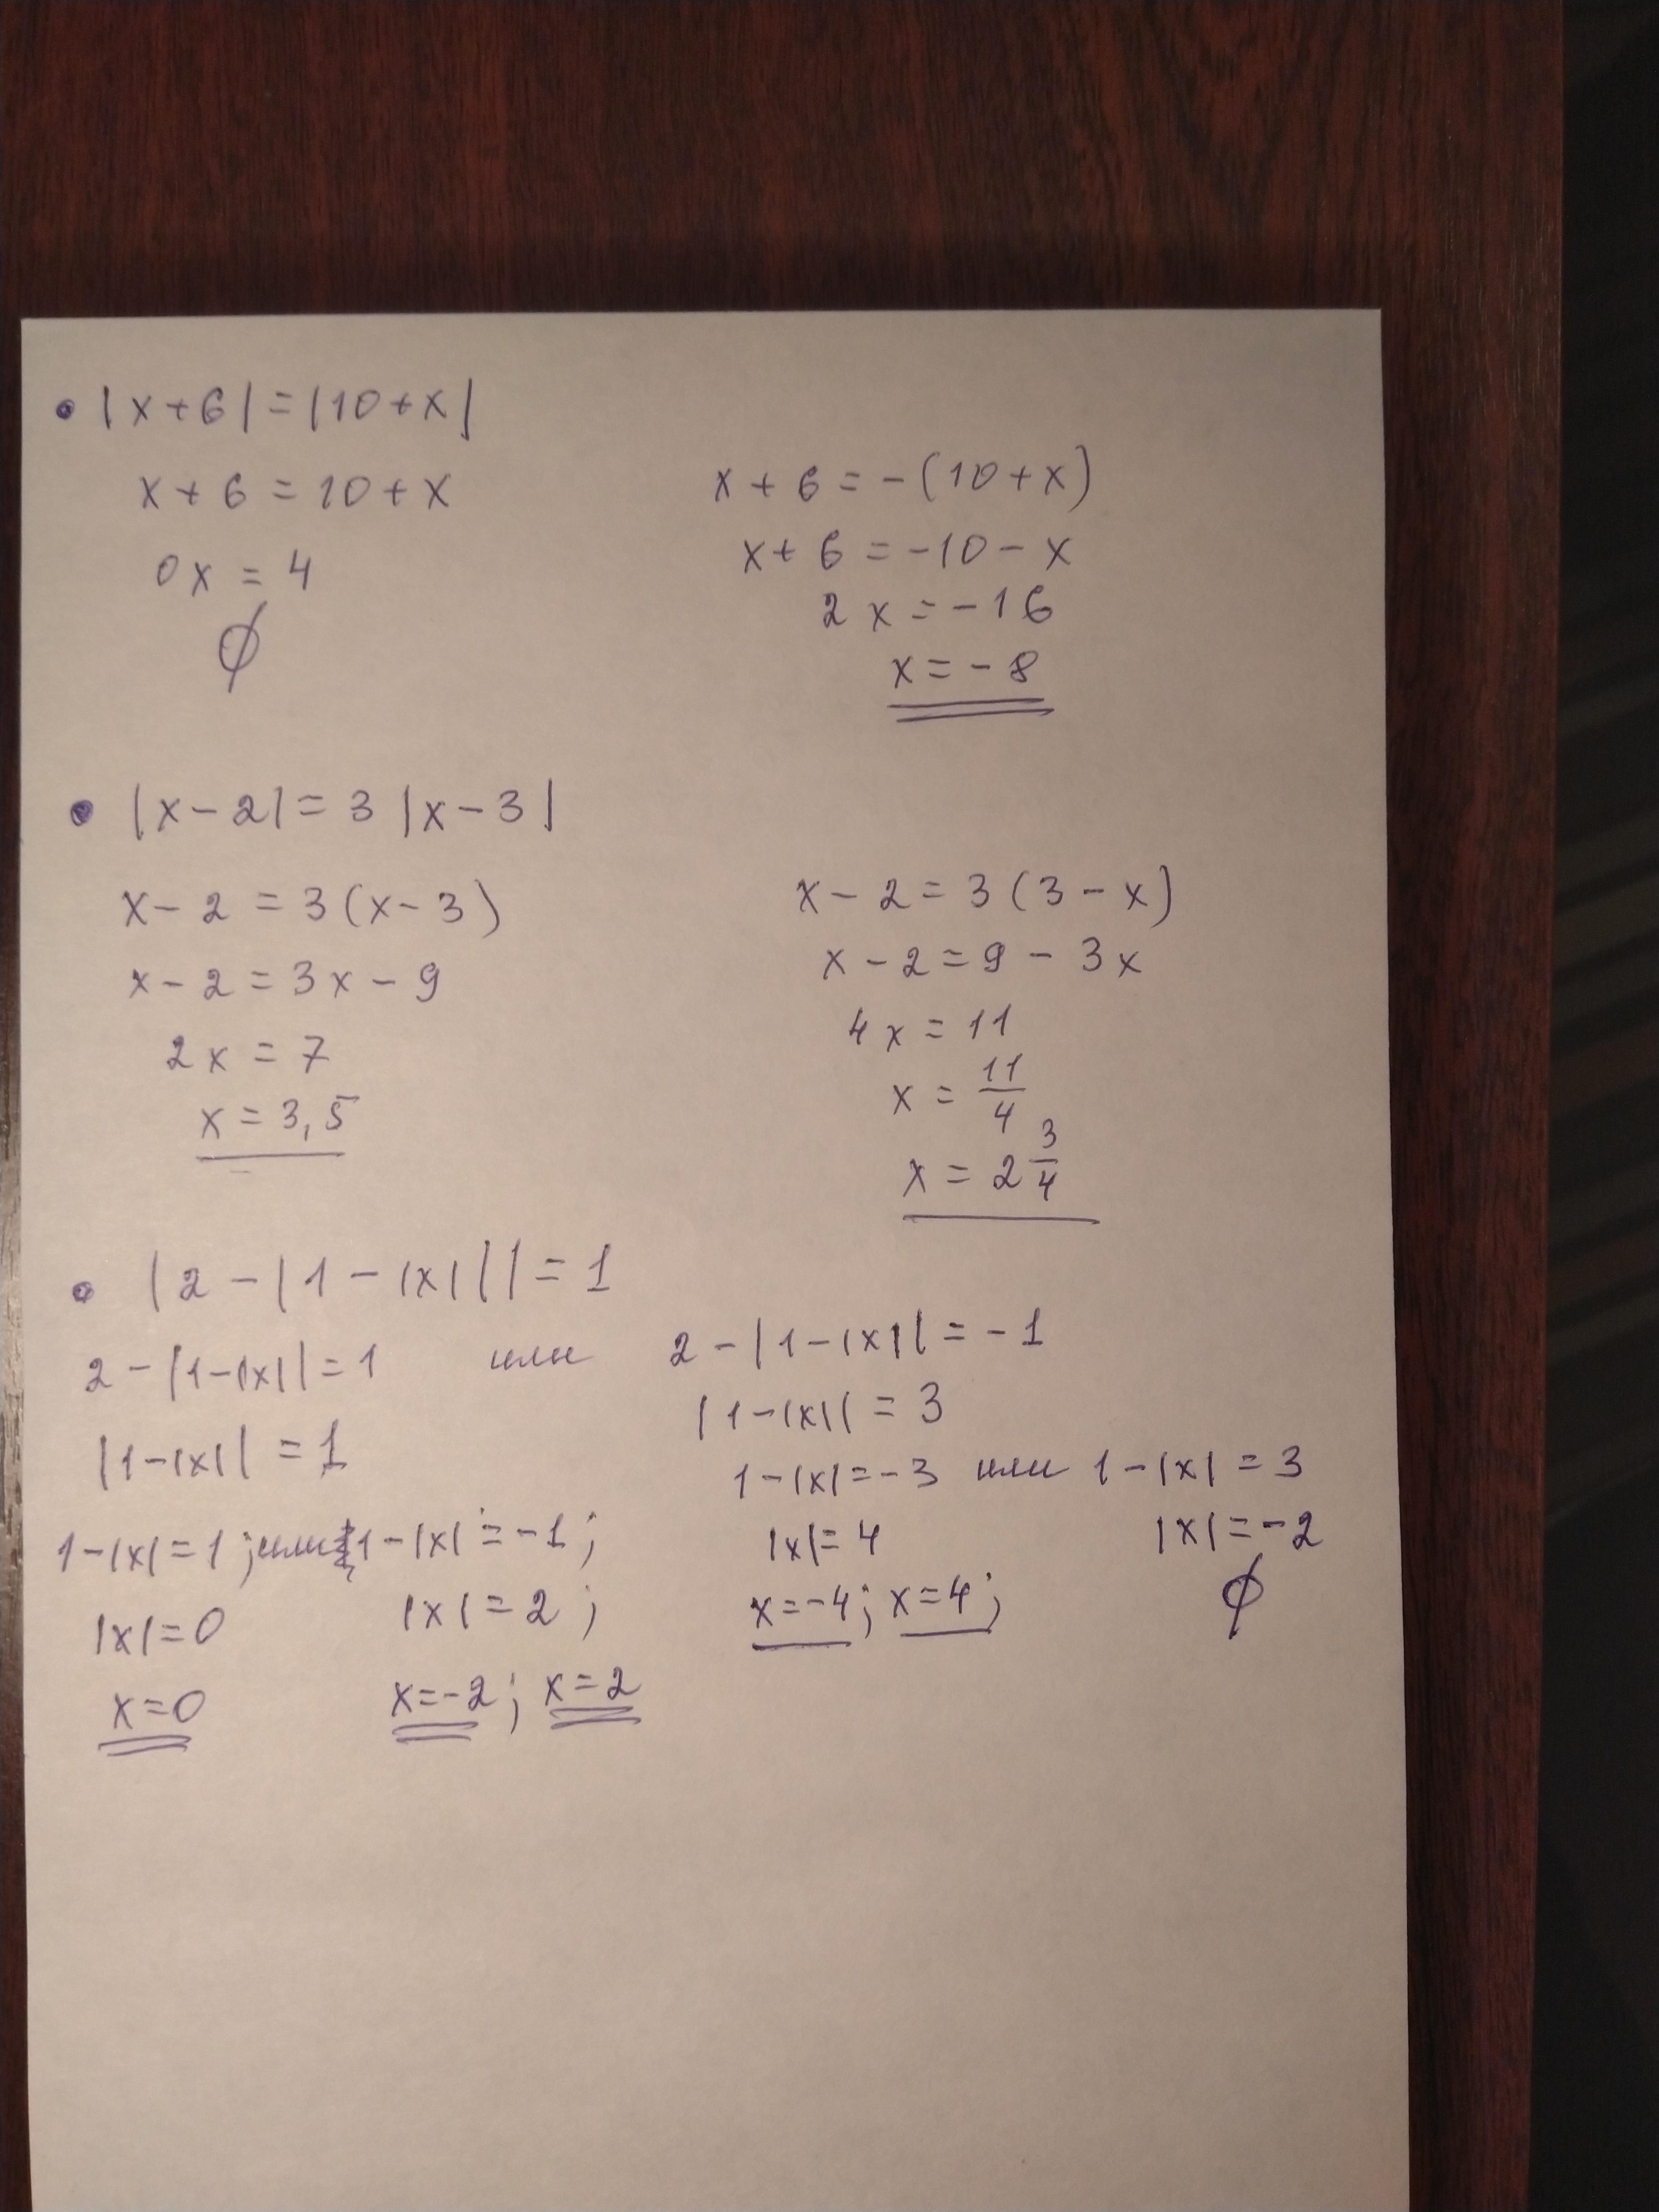 • |x+6|=|10+x|
x+6=10+x
x+6=-(10+x)
0x=4
x+6=-10-x
∅
2x=-16
x=-8
• |x-2|=3|x-3|
x-2=3(x-3)
x-2=3(3-x)
x-2=3x-9
x-2=9-3x
2x=7
4x=11
x=3,5
x=11/4
x=2 3/4
• |2-|1-|x|||=1
2-|1-|x||=1 или 2-|1-|x||=-1
|1-|x||=1
|1-|x||=3
1-|x|=-3 или 1-|x|=3
1-|x|=1; или 1-|x|=-1;
|x|=4 |x|=-2
|x|=0 |x|=2;
x=-4; x=4; ∅
x=0 x=-2; x=2